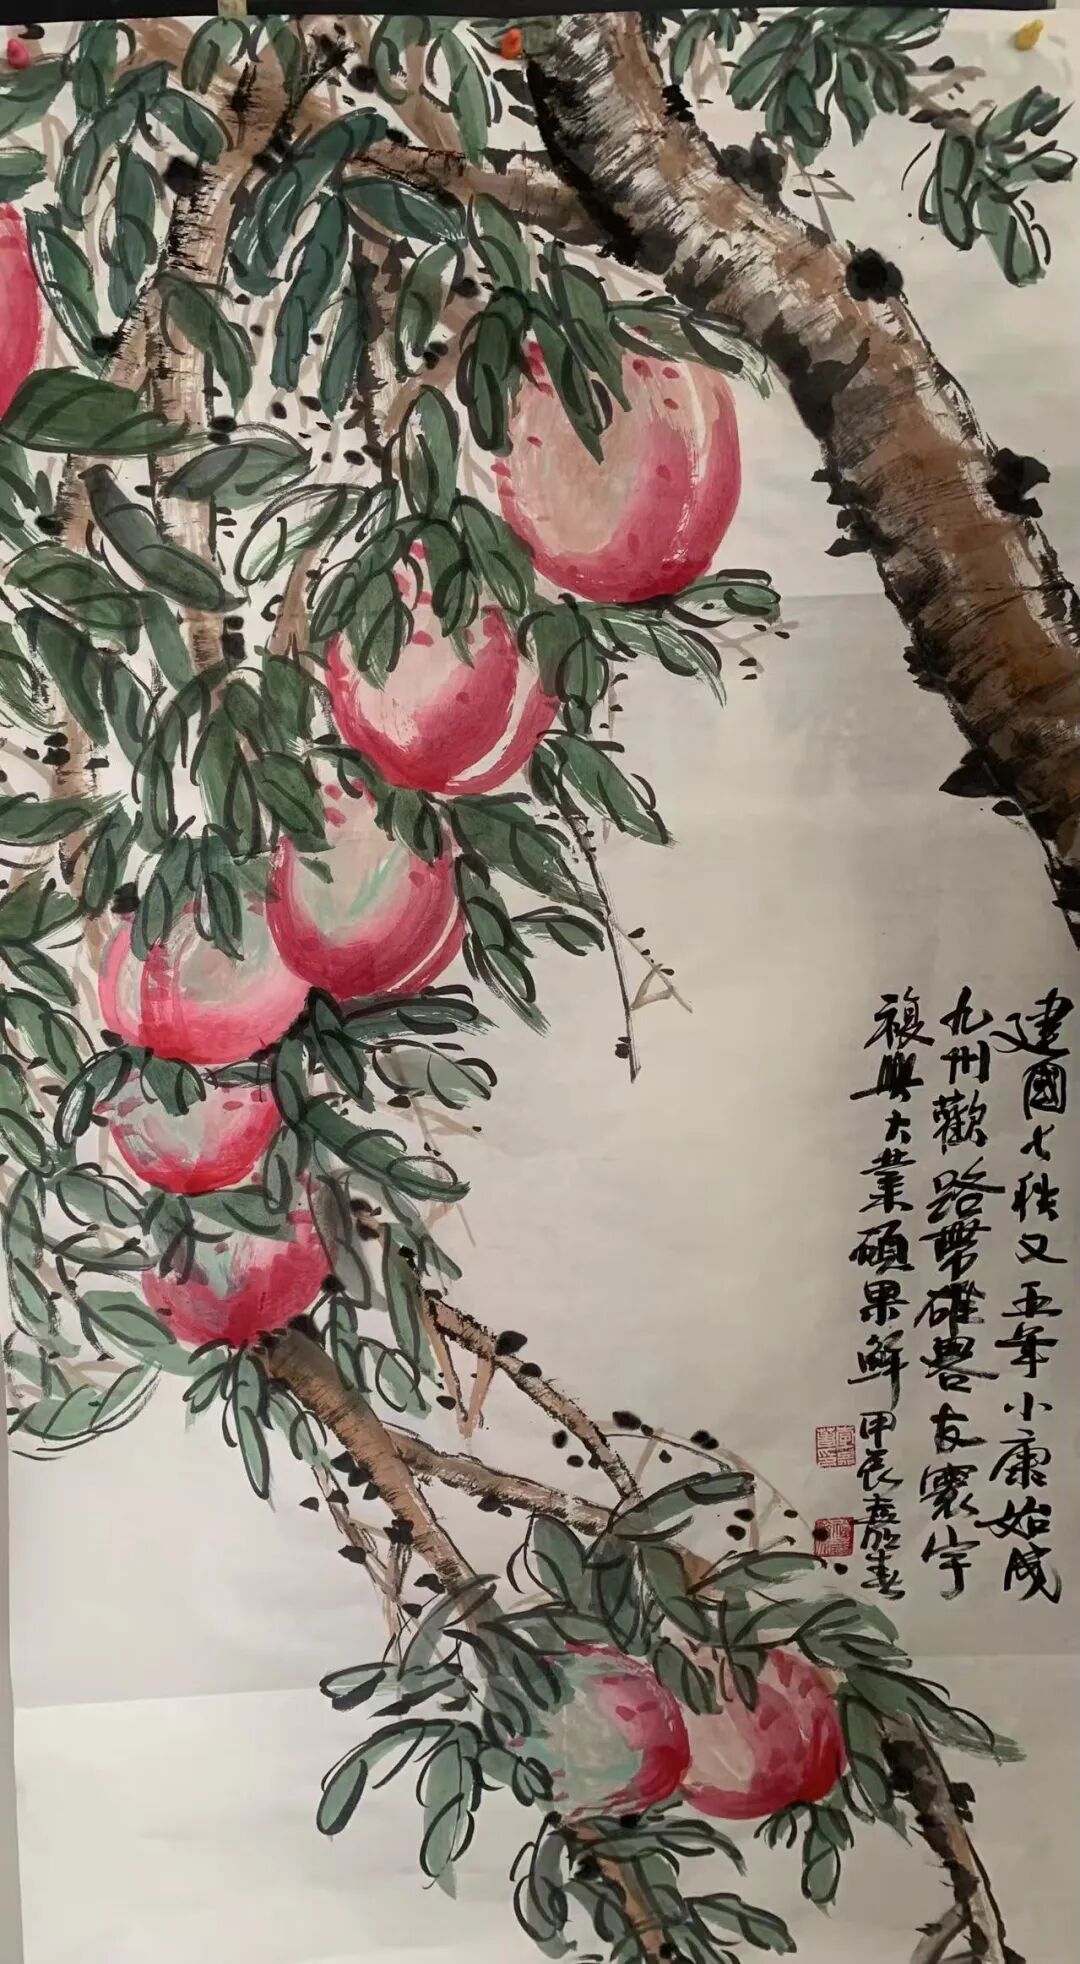 建國七秩又五年小康始成
九州歡路帶雄譽友寰宇
復興大業碩果鮮甲辰嘉勋春